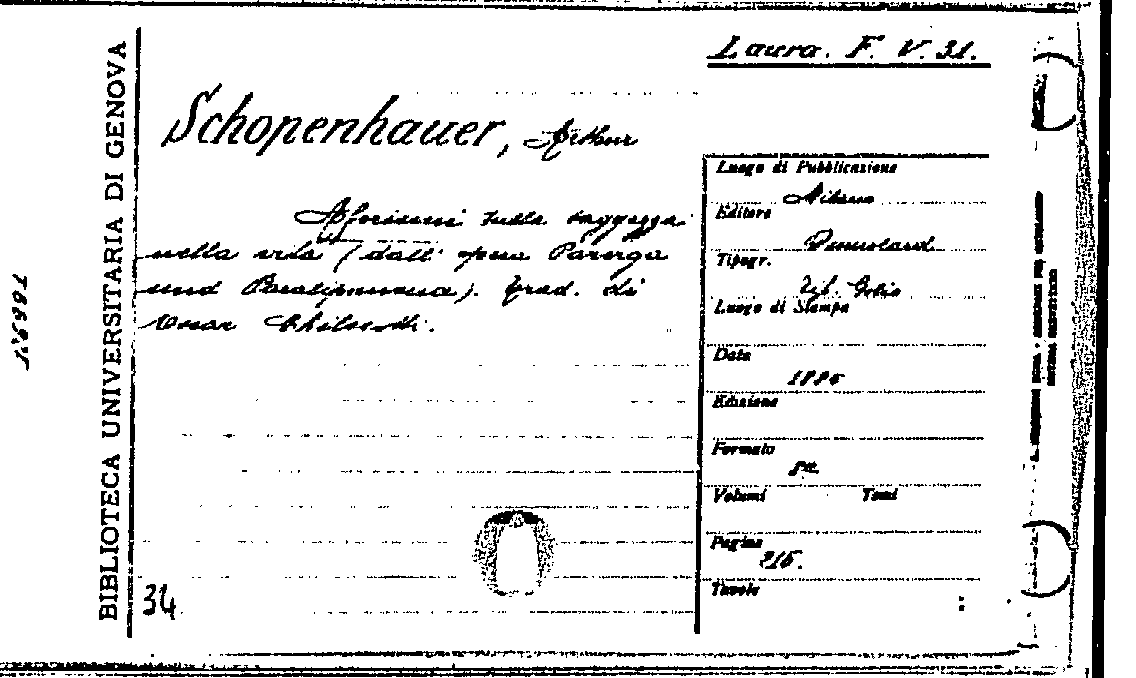 BIBLIOTECA UNIVERSITARIA DI GENOVA
Laura. F. V. 31.
Schopenhauer, Arthur
Aforismi sulla saggezza
nella vita (dall' opera Parerga
und Paralipomena). Trad. di
Oscar Chilesotti.
34
Luogo di Pubblicazione
Milano
Editore
Dumolard
Tipogr.
Tip. Golio
Luogo di Stampa
Data
1885
Edizione
Formato
8º.
Volumi Tomi
Pagine
215.
Tavole